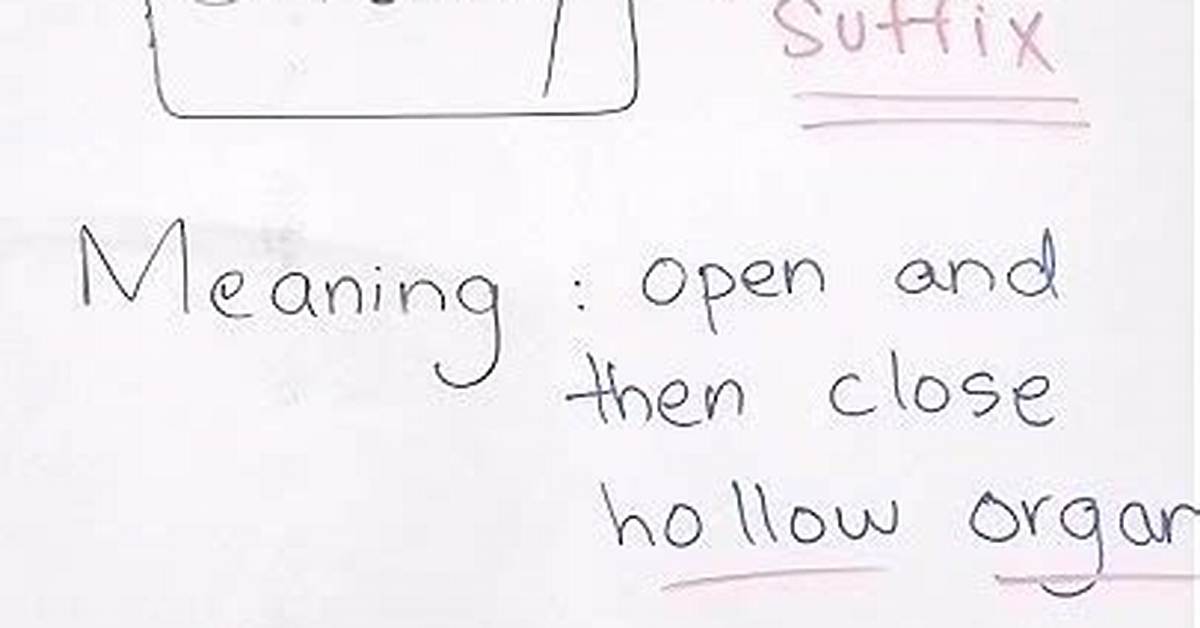 Suffix
Meaning : open and
then close
hollow organ